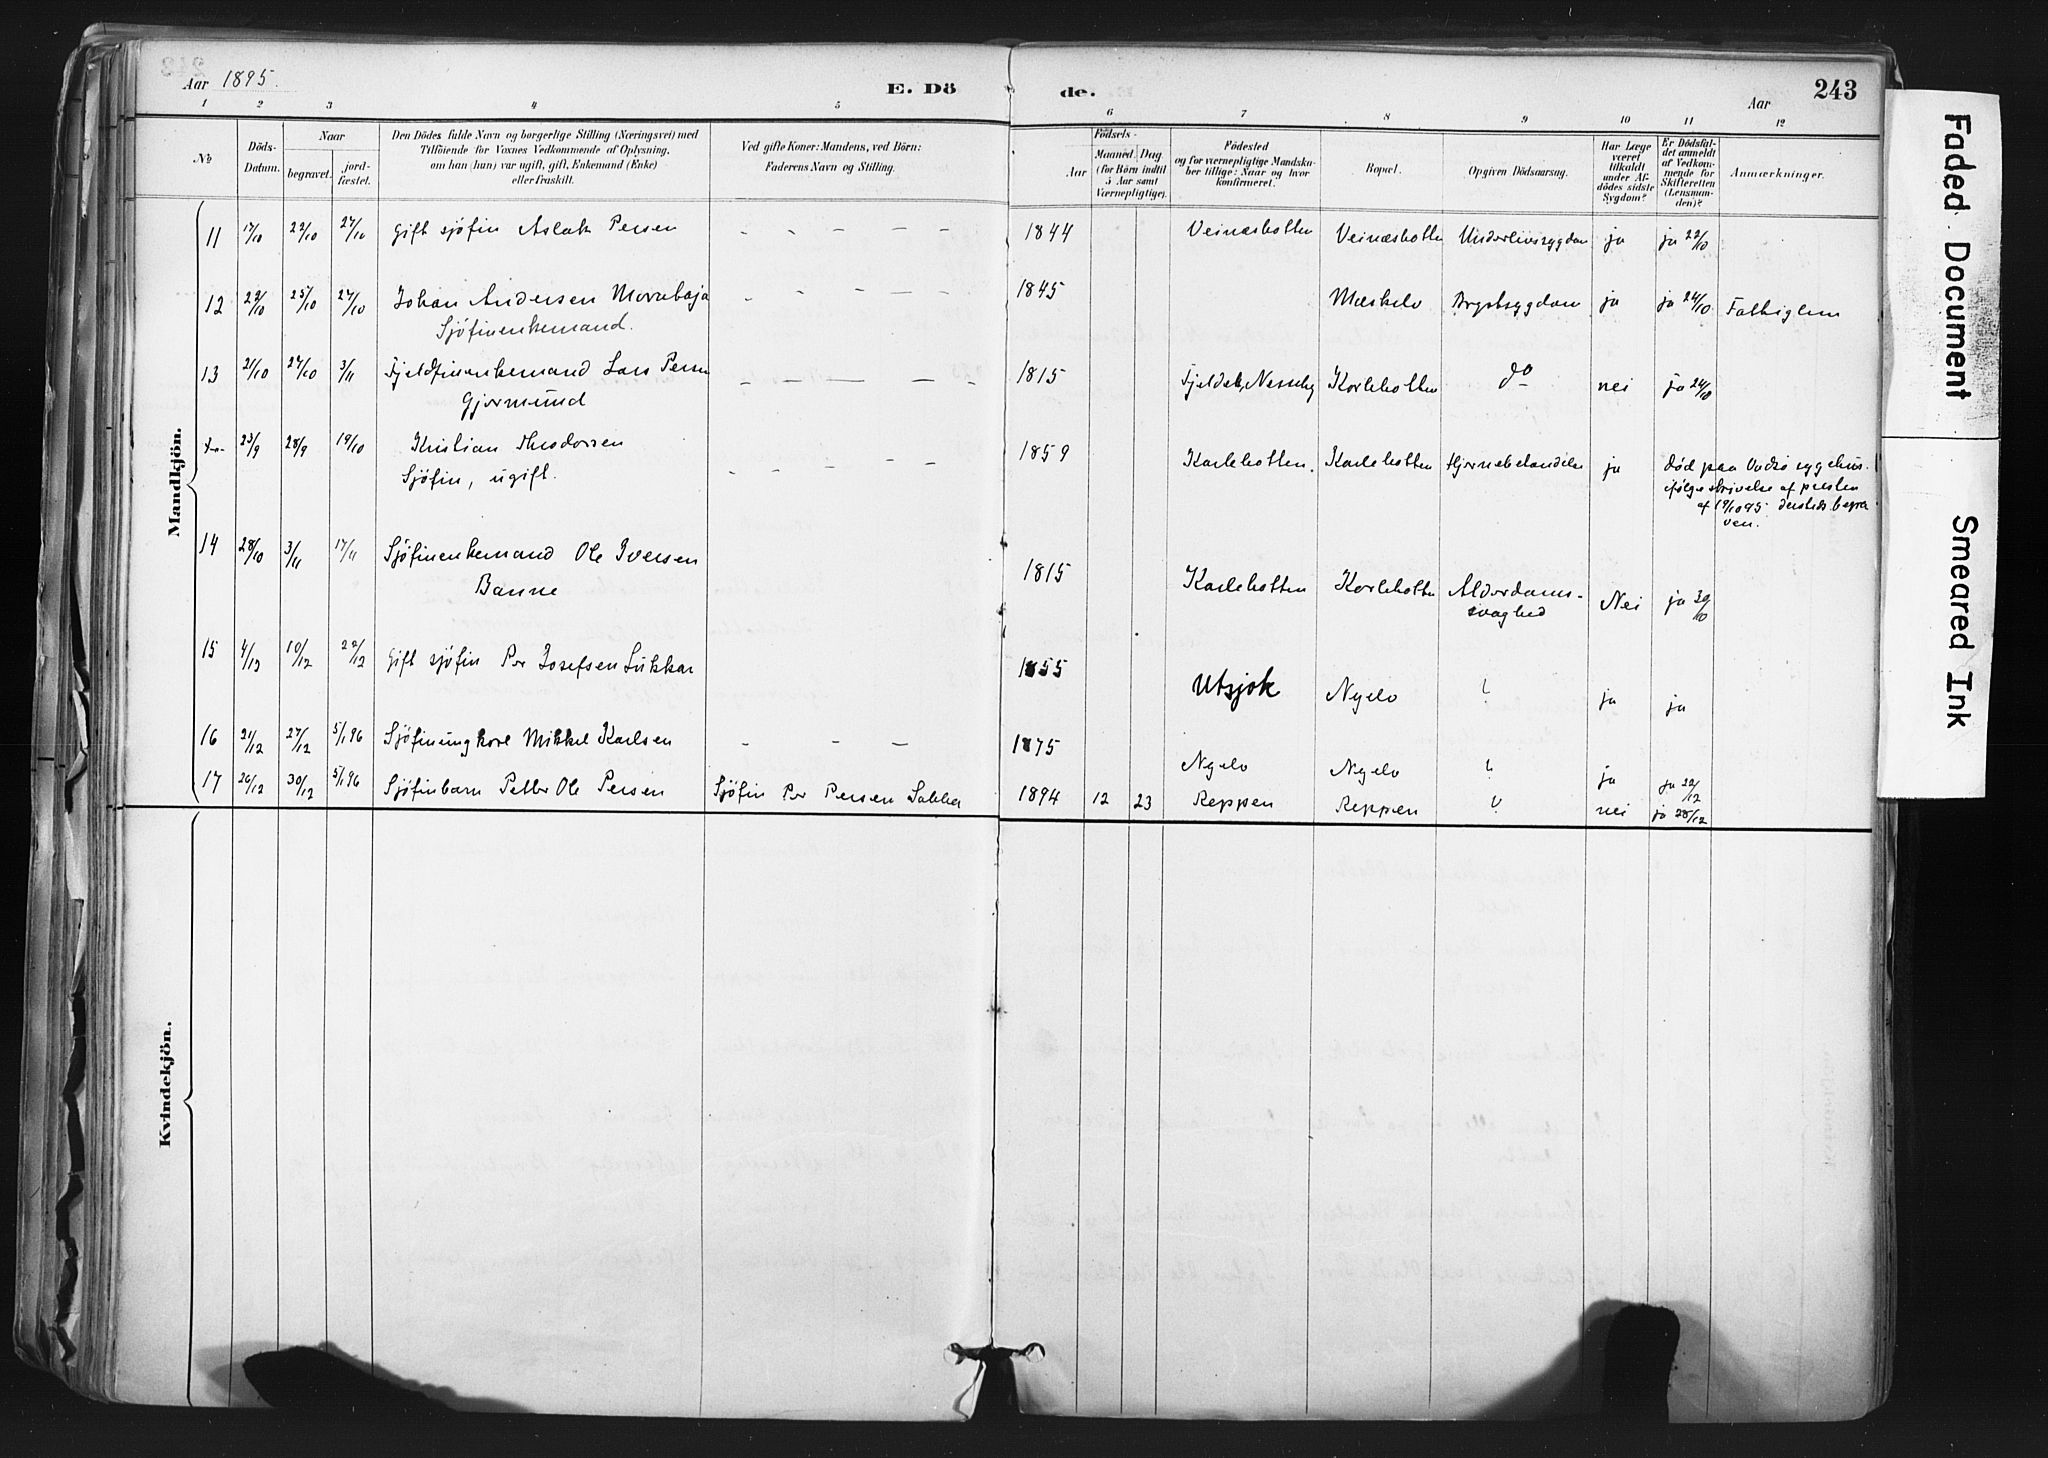 243
Aar 1895.
E. Dö
de.
Aar
1 2 3 4 5 6 7 8 9 10 11 12
No
Döds-
Datum.
Naar
begravet.
jord-
fæstet.
Den Dödes fulde Navn og borgerlige Stilling (Næringsvei) med
Tilföiende for Voxnes Vedkommende af Oplysning,
om han (hun) var ugift, gift, Enkemand (Enke)
eller fraskilt.
Ved gifte Koner: Mandens, ved Börn:
Faderens Navn og Stilling.
Födsels-
Aar
Maaned. Dag
(for Börn indtil
5 Aar samt
Værnepligtige).
Födested
og for værnepligtige Mandska-
ber tillige: Naar og hvor
konfirmeret.
Bopæl.
Opgiven Dödsaarsag.
Har Læge
været
tilkaldt
under Af-
dödes sidste
Sygdom?
Er Dödsfal-
det anmeldt
af Vedkom-
mende for
Skifteretten
(Lensman-
den)?
Anmærkninger.
Mandkjön.
11 17/10 22/10 27/10 Gift sjöfin Aslak Persen - - - - - 1844 Veinæsbotten Veinæsbotten Underlivssygdom ja ja 22/10
12 22/10 25/10 27/10 Johan Andersen Morrebaja - - - - - 1845 Mæskelv Brystsygdom ja ja 24/10 Fattiglem
Sjöfinenkemand.
13 21/10 27/10 3/11 Fjeldfinenkemand Lars Persen - - - - - 1815 Fjeldet, Nesseby Karlebotten do nei ja 24/10
Gjormund
23/9 28/9 19/10 Kristian Thodorsen - - - - - 1859 Karlebotten. Karlebotten Hjernebetændelse ja död paa Vadsö sygehus.
Sjöfin, ugift.
ifölge skrivelse af presten
af 19/10 95 dersteds begra-
ven.
14 28/10 3/11 17/11 Sjöfinenkemand Ole Iversen 1815 Karlebotten Karlebotten Alderdoms- Nei ja 30/10
Banne
svaghed
15 4/12 10/12 22/12 Gift sjöfin Per Josefsen Lukkar 1855 Utsjok Nyelv ? ja ja
16 21/12 27/12 5/1 96 Sjöfinungkarl Mikkel Karlsen - - - 1875 Nyelv Nyelv ? ja ja 22/12
17 26/12 30/12 5/1 96 Sjöfinbarn Petter Ole Persen Sjöfin Per Persen Sabba 1894 12 23 Reppen Reppen ? nei ja 28/12
Kvindekjön.
Faded Document
Smeared Ink